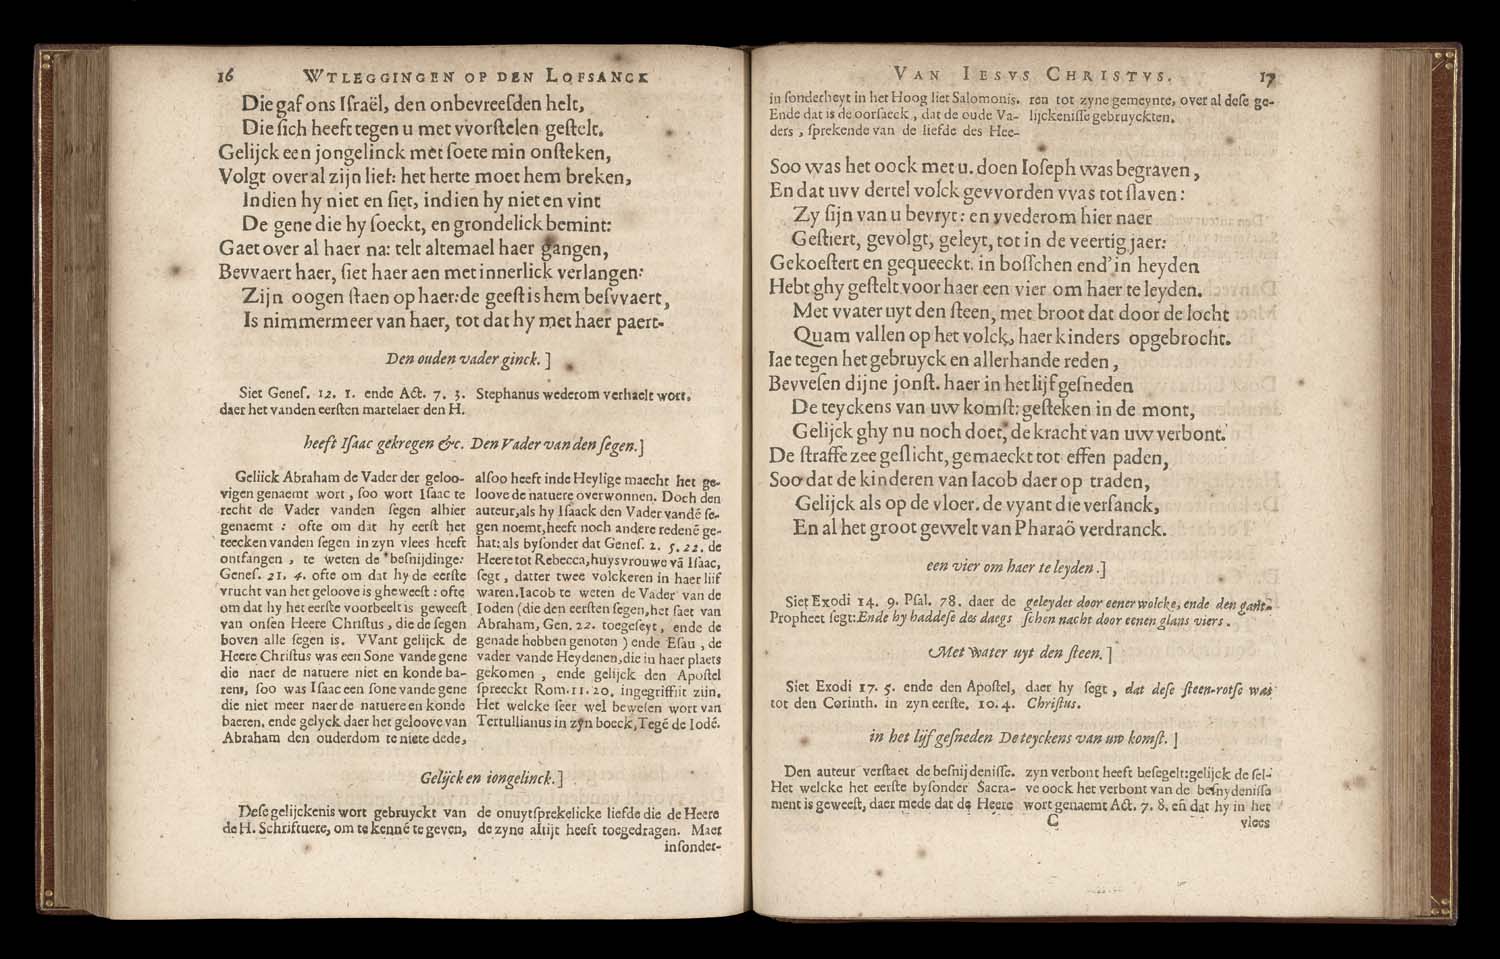 16 WTLEGGINGEN OP DEN LOFSANCK
Die gaf ons Iſraël, den onbevreeſden helt,
Die ſich heeft tegen u met vvorſtelen geſtelt.
Gelijck een jongelinck met ſoete min onſteken,
Volgt over al zijn lief: het herte moet hem breken,
Indien hy niet en ſiet, indien hy niet en vint
De gene die hy ſoeckt, en grondelick bemint:
Gaet over al haer na: telt altemael haer gangen,
Bevvaert haer, ſiet haer aen met innerlick verlangen:
Zijn oogen ſtaen op haer: de geeſt is hem beſvvaert,
Is nimmermeer van haer, tot dat hy met haer paert.
Den ouden vader ginck. ]
Siet Geneſ. 12. 1. ende Act. 7. 3.
daer het vanden eerſten martelaer den H.
Stephanus wederom verhaelt wort.
heeft Iſaac gekregen &c. Den Vader van den ſegen.]
Geliick Abraham de Vader der geloo-
vigen genaemt wort, ſoo wort Iſaac te
recht de Vader vanden ſegen alhier
genaemt : ofte om dat hy eerſt het
teecken vanden ſegen in zyn vlees heeft
ontfangen , te weten de beſnijdinge:
Geneſ. 21. 4. ofte om dat hy de eerſte
vrucht van het geloove is gheweeſt : ofte
om dat hy het eerſte voorbeelt is geweeſt
van onſen Heere Chriſtus, die de ſegen
boven alle ſegen is. VVant gelijck de
Heere Chriſtus was een Sone vande gene
die naer de natuere niet en konde ba-
ren, ſoo was Iſaac een ſone vande gene
die niet meer naer de natuere en konde
baeren, ende gelyck daer het geloove van
Abraham den ouderdom te niete dede,
alſoo heeft inde Heylige maecht het ge-
loove de natuere overwonnen. Doch den
auteur, als hy Iſaack den Vader vandē ſe-
gen noemt, heeft noch andere redenē ge-
hat: als byſonder dat Geneſ. 2. 5. 22. de
Heere tot Rebecca, huysvrouwe vā Iſaac,
ſegt, datter twee volckeren in haer liif
waren. Iacob te weten de Vader van de
Ioden (die den eerſten ſegen, het ſaet van
Abraham, Gen. 22. toegeſeyt, ende de
genade hebben genoten ) ende Eſau , de
vader vande Heydenen, die in haer plaets
gekomen , ende gelijck den Apoſtel
ſpreeckt Rom. 11. 20. ingegriffiit zijn.
Het welcke ſeer wel beweſen wort van
Tertullianus in zyn boeck, Tegē de Iodē.
Gelijck en iongelinck.]
Deſe gelijckenis wort gebruyckt van
de H. Schriftuere, om te kennē te geven,
de onuytſprekelicke liefde die de Heere
de zyne altijt heeft toegedragen. Maer
inſonder-
VAN IESVS CHRISTVS. 17
in ſonderheyt in het Hoog liet Salomonis.
Ende dat is de oorſaeck , dat de oude Va-
ders , ſprekende van de liefde des Hee-
ren tot zyne gemeynte, over al deſe ge-
lijckeniſſe gebruyckten.
Soo was het oock met u. doen Ioſeph was begraven,
En dat uvv dertel volck gevvorden vvas tot ſlaven:
Zy ſijn van u bevryt: en vvederom hier naer
Geſtiert, gevolgt, geleyt, tot in de veertig jaer:
Gekoeſtert en gequeeckt. in boſſchen end' in heyden
Hebt ghy geſtelt voor haer een vier om haer te leyden.
Met vvater uyt den ſteen, met broot dat door de locht
Quam vallen op het volck, haer kinders opgebrocht.
Iae tegen het gebruyck en allerhande reden,
Bevveſen dijne jonſt. haer in het lijf geſneden
De teyckens van uw komſt: geſteken in de mont,
Gelijck ghy nu noch doet, de kracht van uw verbont.
De ſtraffe zee geſlicht, gemaeckt tot effen paden,
Soo dat de kinderen van Iacob daer op traden,
Gelijck als op de vloer. de vyant die verſanck,
En al het groot gewelt van Pharaö verdranck.
een vier om haer te leyden.]
Siet Exodi 14. 9. Pſal. 78. daer de
Propheet ſegt: Ende hy haddeſe des daegs
geleydet door eener wolcke, ende den gant-
ſchen nacht door eenen glans viers.
Met water uyt den ſteen.]
Siet Exodi 17. 5. ende den Apoſtel,
tot den Corinth. in zyn eerſte. 10. 4.
daer hy ſegt, dat deſe ſteen-rotſe was
Chriſtus.
in het lijf geſneden De teyckens van uw komſt. ]
Den auteur verſtaet de beſnijdeniſſe.
Het welcke het eerſte byſonder Sacra-
ment is geweeſt, daer mede dat de Heere
zyn verbont heeft beſegelt: gelijck de ſel-
ve oock het verbont van de beſnydeniſſe
wort genaemt Act. 7. 8. eñ dat hy in het
C vlees